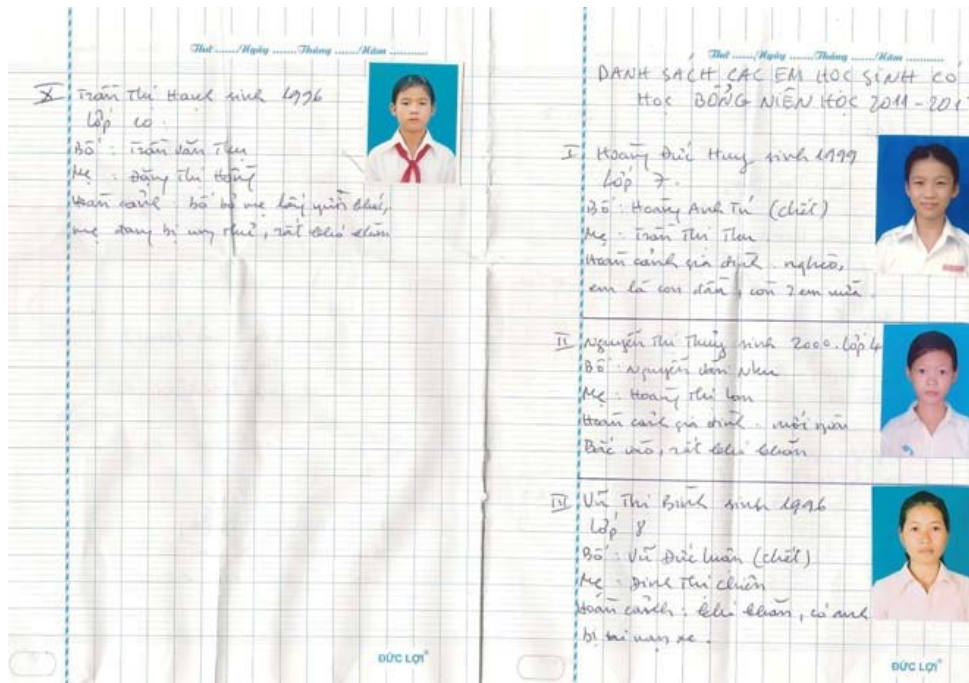 Thứ ....../Ngày .......Tháng ....../Năm ...........
X Trần Thị Hạnh sinh 1996
Lớp 10.
Bố : Trần Văn Thu
Mẹ : Đặng Thị Hồng
Hoàn cảnh : bố bỏ mẹ lấy người khác,
mẹ đang bị ung thư, rất khó khăn
ĐỨC LỢI
Thứ ....../Ngày .......Tháng ....../Năm ...........
DANH SÁCH CÁC EM HỌC SINH CÓ
HỌC BỔNG NIÊN HỌC 2011-201
I Hoàng Đức Huy sinh 1999
Lớp 7.
Bố : Hoàng Anh Tú (chết)
Mẹ : Trần Thị Thu
Hoàn cảnh gia đình nghèo,
em là con đầu, còn 2 em nữa.
II Nguyễn Thị Thủy sinh 2000. Lớp 4
Bố : Nguyễn Văn Nhu
Mẹ : Hoàng Thị Lan
Hoàn cảnh gia đình : mới ngoài
Bắc vào, rất khó khăn
III Vũ Thị Bình sinh 1996
Lớp 8
Bố : Vũ Đức Luân (chết)
Mẹ : Đinh Thị Chiên
Hoàn cảnh : khó khăn, có anh
bị tai nạn xe.
ĐỨC LỢI